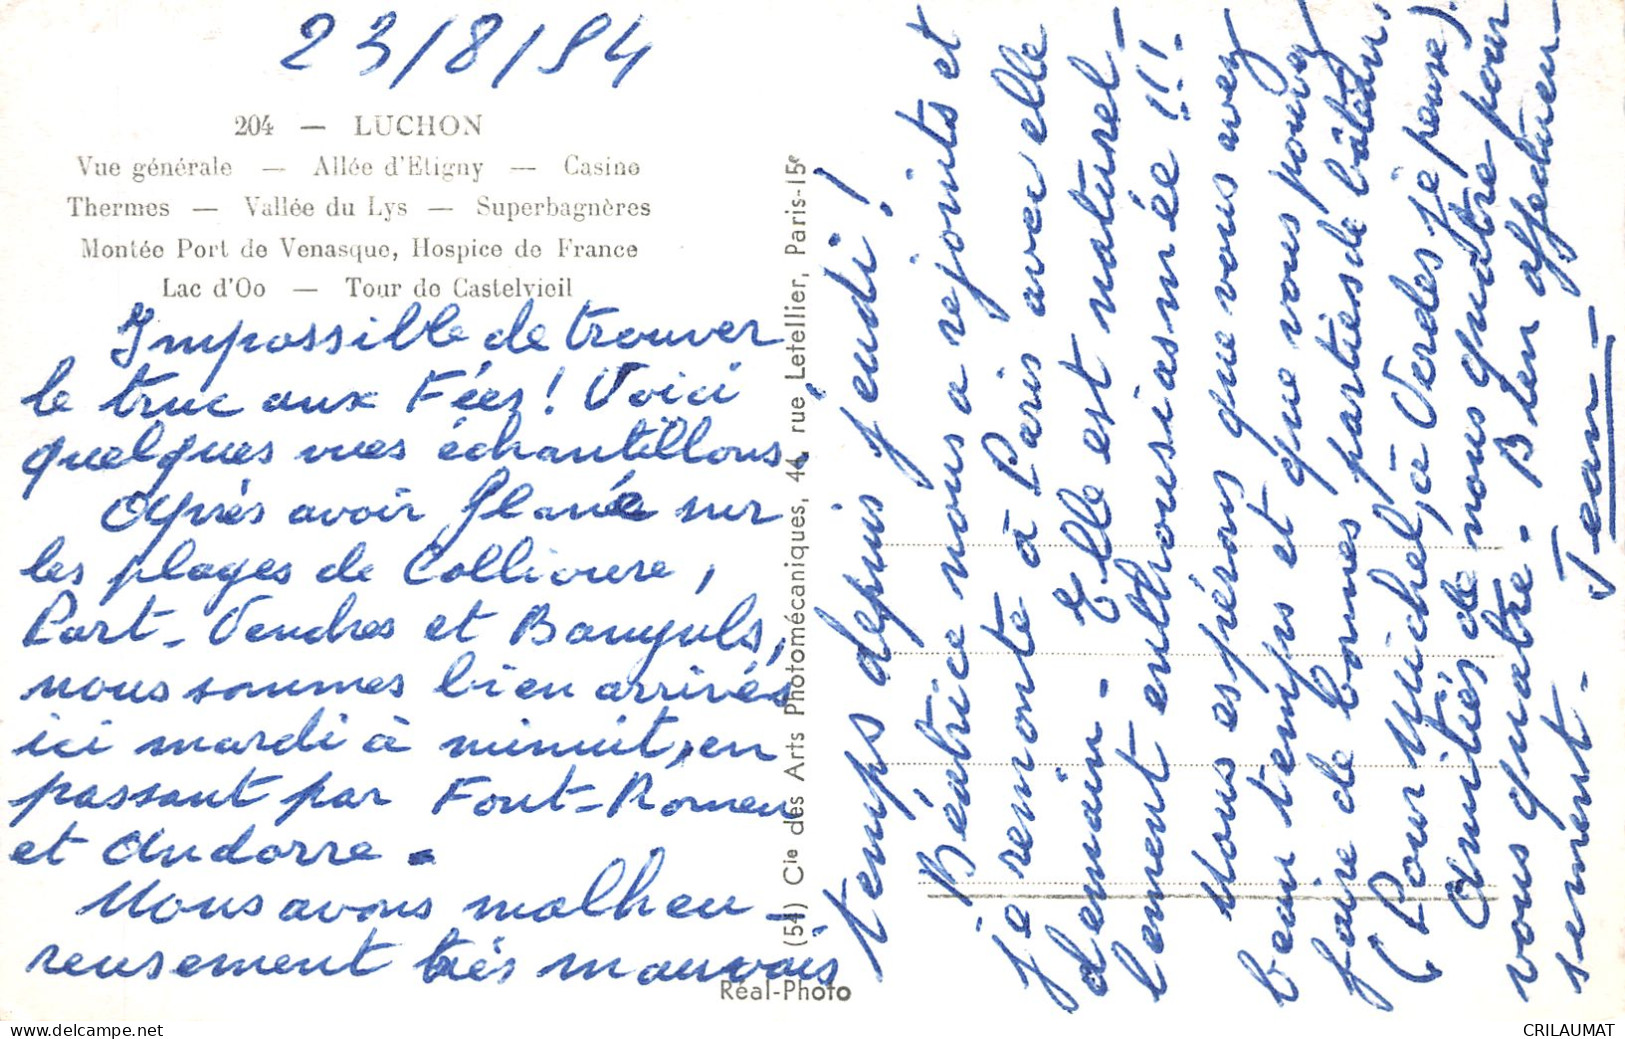 23/8/54
204 — LUCHON
Vue générale — Allée d'Etigny — Casino
Thermes — Vallée du Lys — Superbagnères
Montée Port de Venasque, Hospice de France
Lac d'Oo — Tour de Castelvieil
Impossible de trouver
le truc aux Fées! Voici
quelques vues échantillons.
Après avoir flané sur
les plages de Collioure,
Port-Vendres et Banyuls,
nous sommes bien arrivés
ici mardi à minuit, en
passant par Font-Romeu
et Andorre.
Nous avons malheu-
reusement très mauvais
(54) Cie des Arts Photomécaniques, 44, rue Letellier, Paris-15e
Réal-Photo
temps depuis jeudi!
Béatrice nous a rejoints et
je remonte à Paris avec elle
demain. Elle est naturel-
lement enthousiasmée!!!
Nous espérons que vous avez
beau temps et que vous pouvez
faire de bonnes parties de bâteau,
(Pour Michel, à Verdes je pense).
Amitiés de nous quatre pour
vous quatre. Bien affectueu-
sement.
Jean
CRILAUMAT